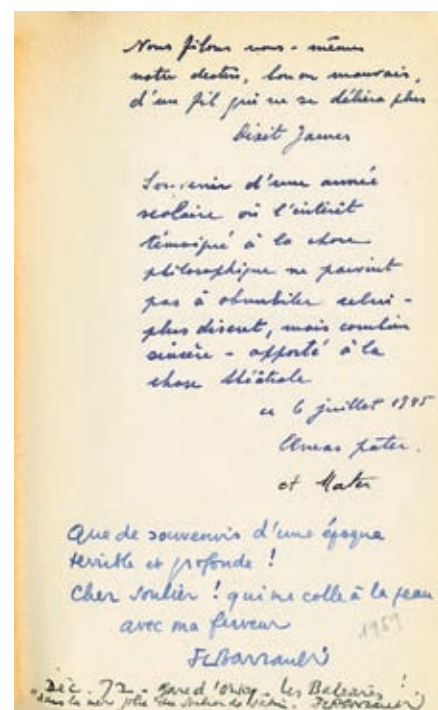 Nous filons nous-mêmes
notre destin, bon ou mauvais,
d'un fil qui ne se déliera plus
Dixit James
Souvenir d'une année
scolaire où l'intérêt
témoigné à la chose
philosophique ne parvint
pas à obnubiler celui -
plus discret, mais combien
sincère - apporté à la
chose théâtrale
ce 6 juillet 1945
pater.
et Mater
Que de souvenirs d'une époque
terrible et profonde !
Cher soulier ! qui me colle à la peau
avec ma ferveur
JLBarrault
1959
Déc. 72 - gare d'Orsay - Les Baléares !
"dans la mer JLBarrault